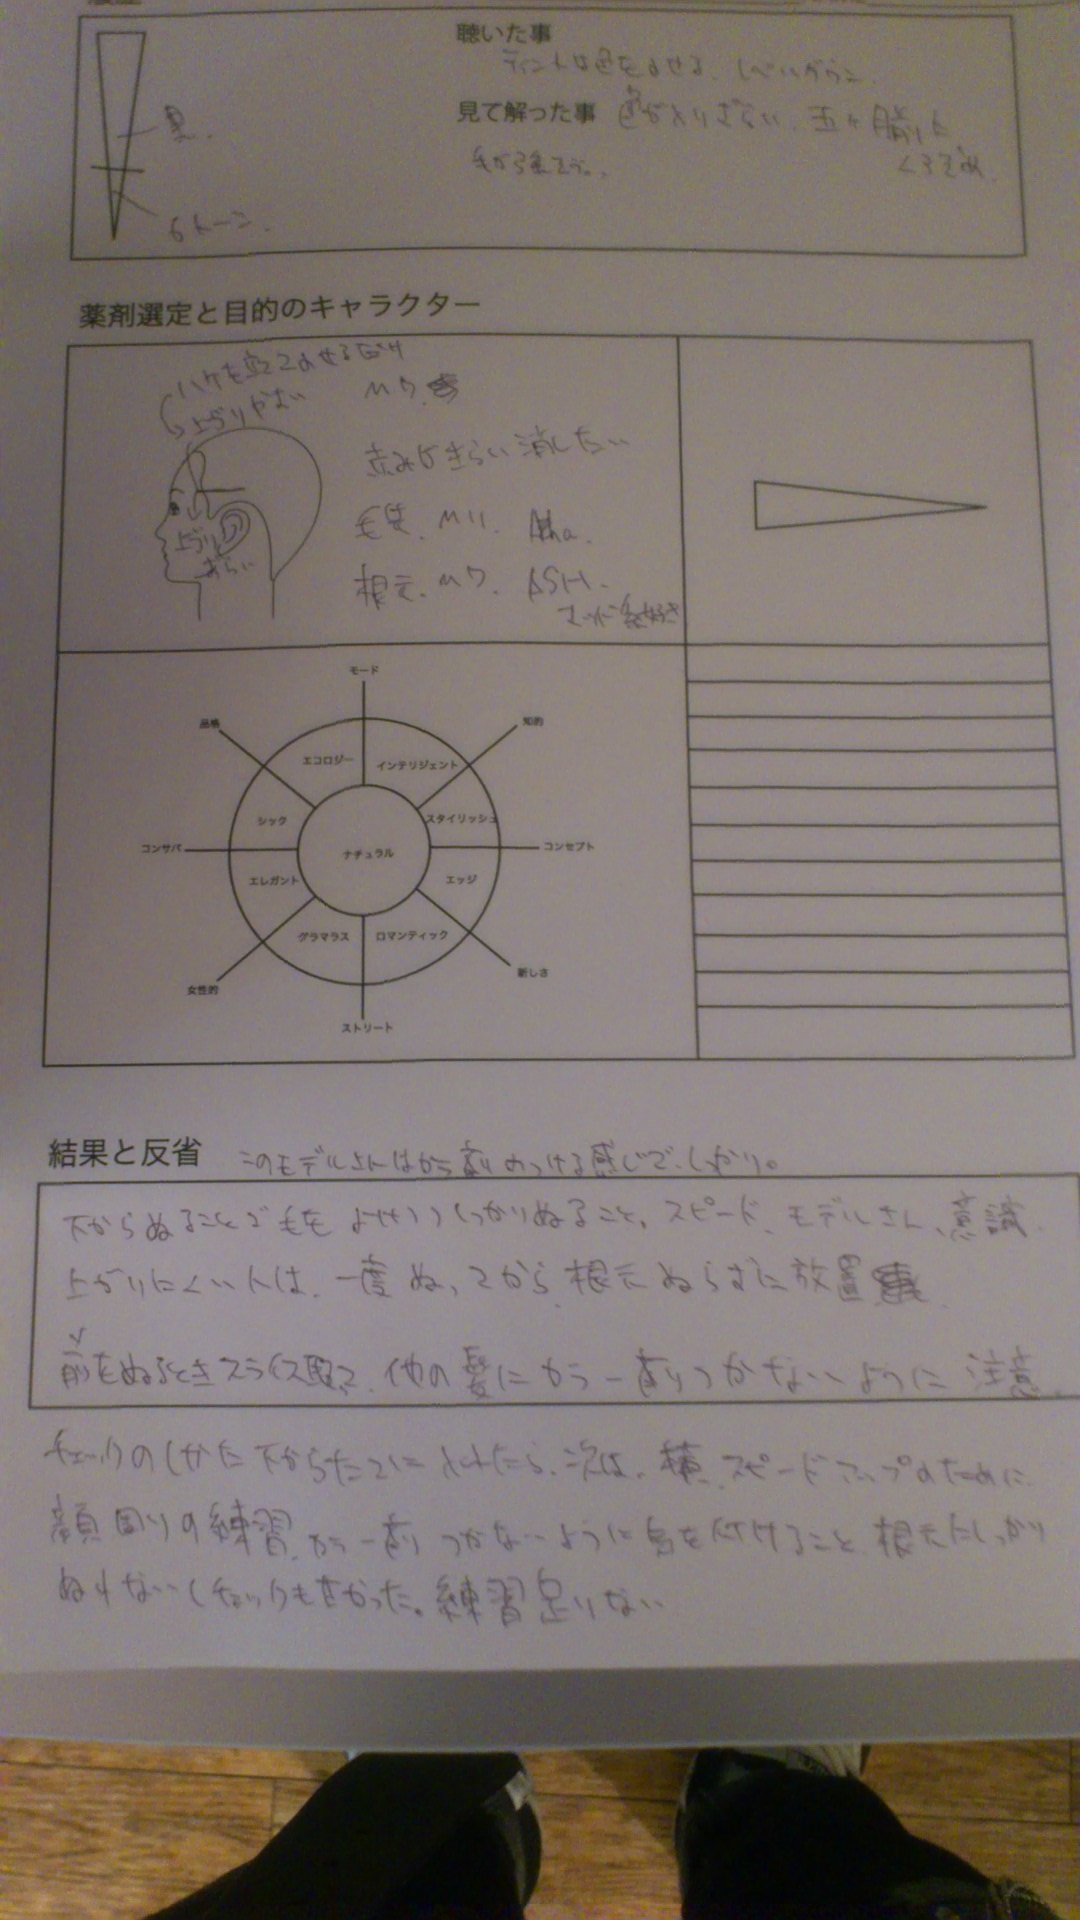 聴いた事
ティントは色をみせる、レベルがウン
見て解った事 色がとりづらい、五ヶ月前に
くろぞめ
毛が強そう。
黒.
6トーン.
薬剤選定と目的のキャラクター
ハケを立てのせるだけ
上がりやすい
M7.
赤みはきらい消したい
毛先. M11.
根元. M7. ASH.
マット系好き
上がり
づらい
モード
品格
知的
エコロジー
インテリジェント
シック
スタイリッシュ
コンサバ
ナチュラル
コンセプト
エレガント
エッジ
グラマラス
ロマンティック
女性的
新しさ
ストリート
結果と反省 このモデルさんはカラー剤のっける感じで、しっかり。
下からぬることで毛を しっかりぬること。スピード、モデルさん、意識.
上がりにくい人は、一度ぬってから、根元ぬらずに放置
前をぬるときスライス取って、他の髪にカラー剤つかないように 注意.
チェックのしかた 下からたてに とれたら、次は、横、スピードアップのために
顔周りの練習、カラー剤つかないように 気を付けること、根元にしっかり
ぬれないしチェックもきかった。練習足りない